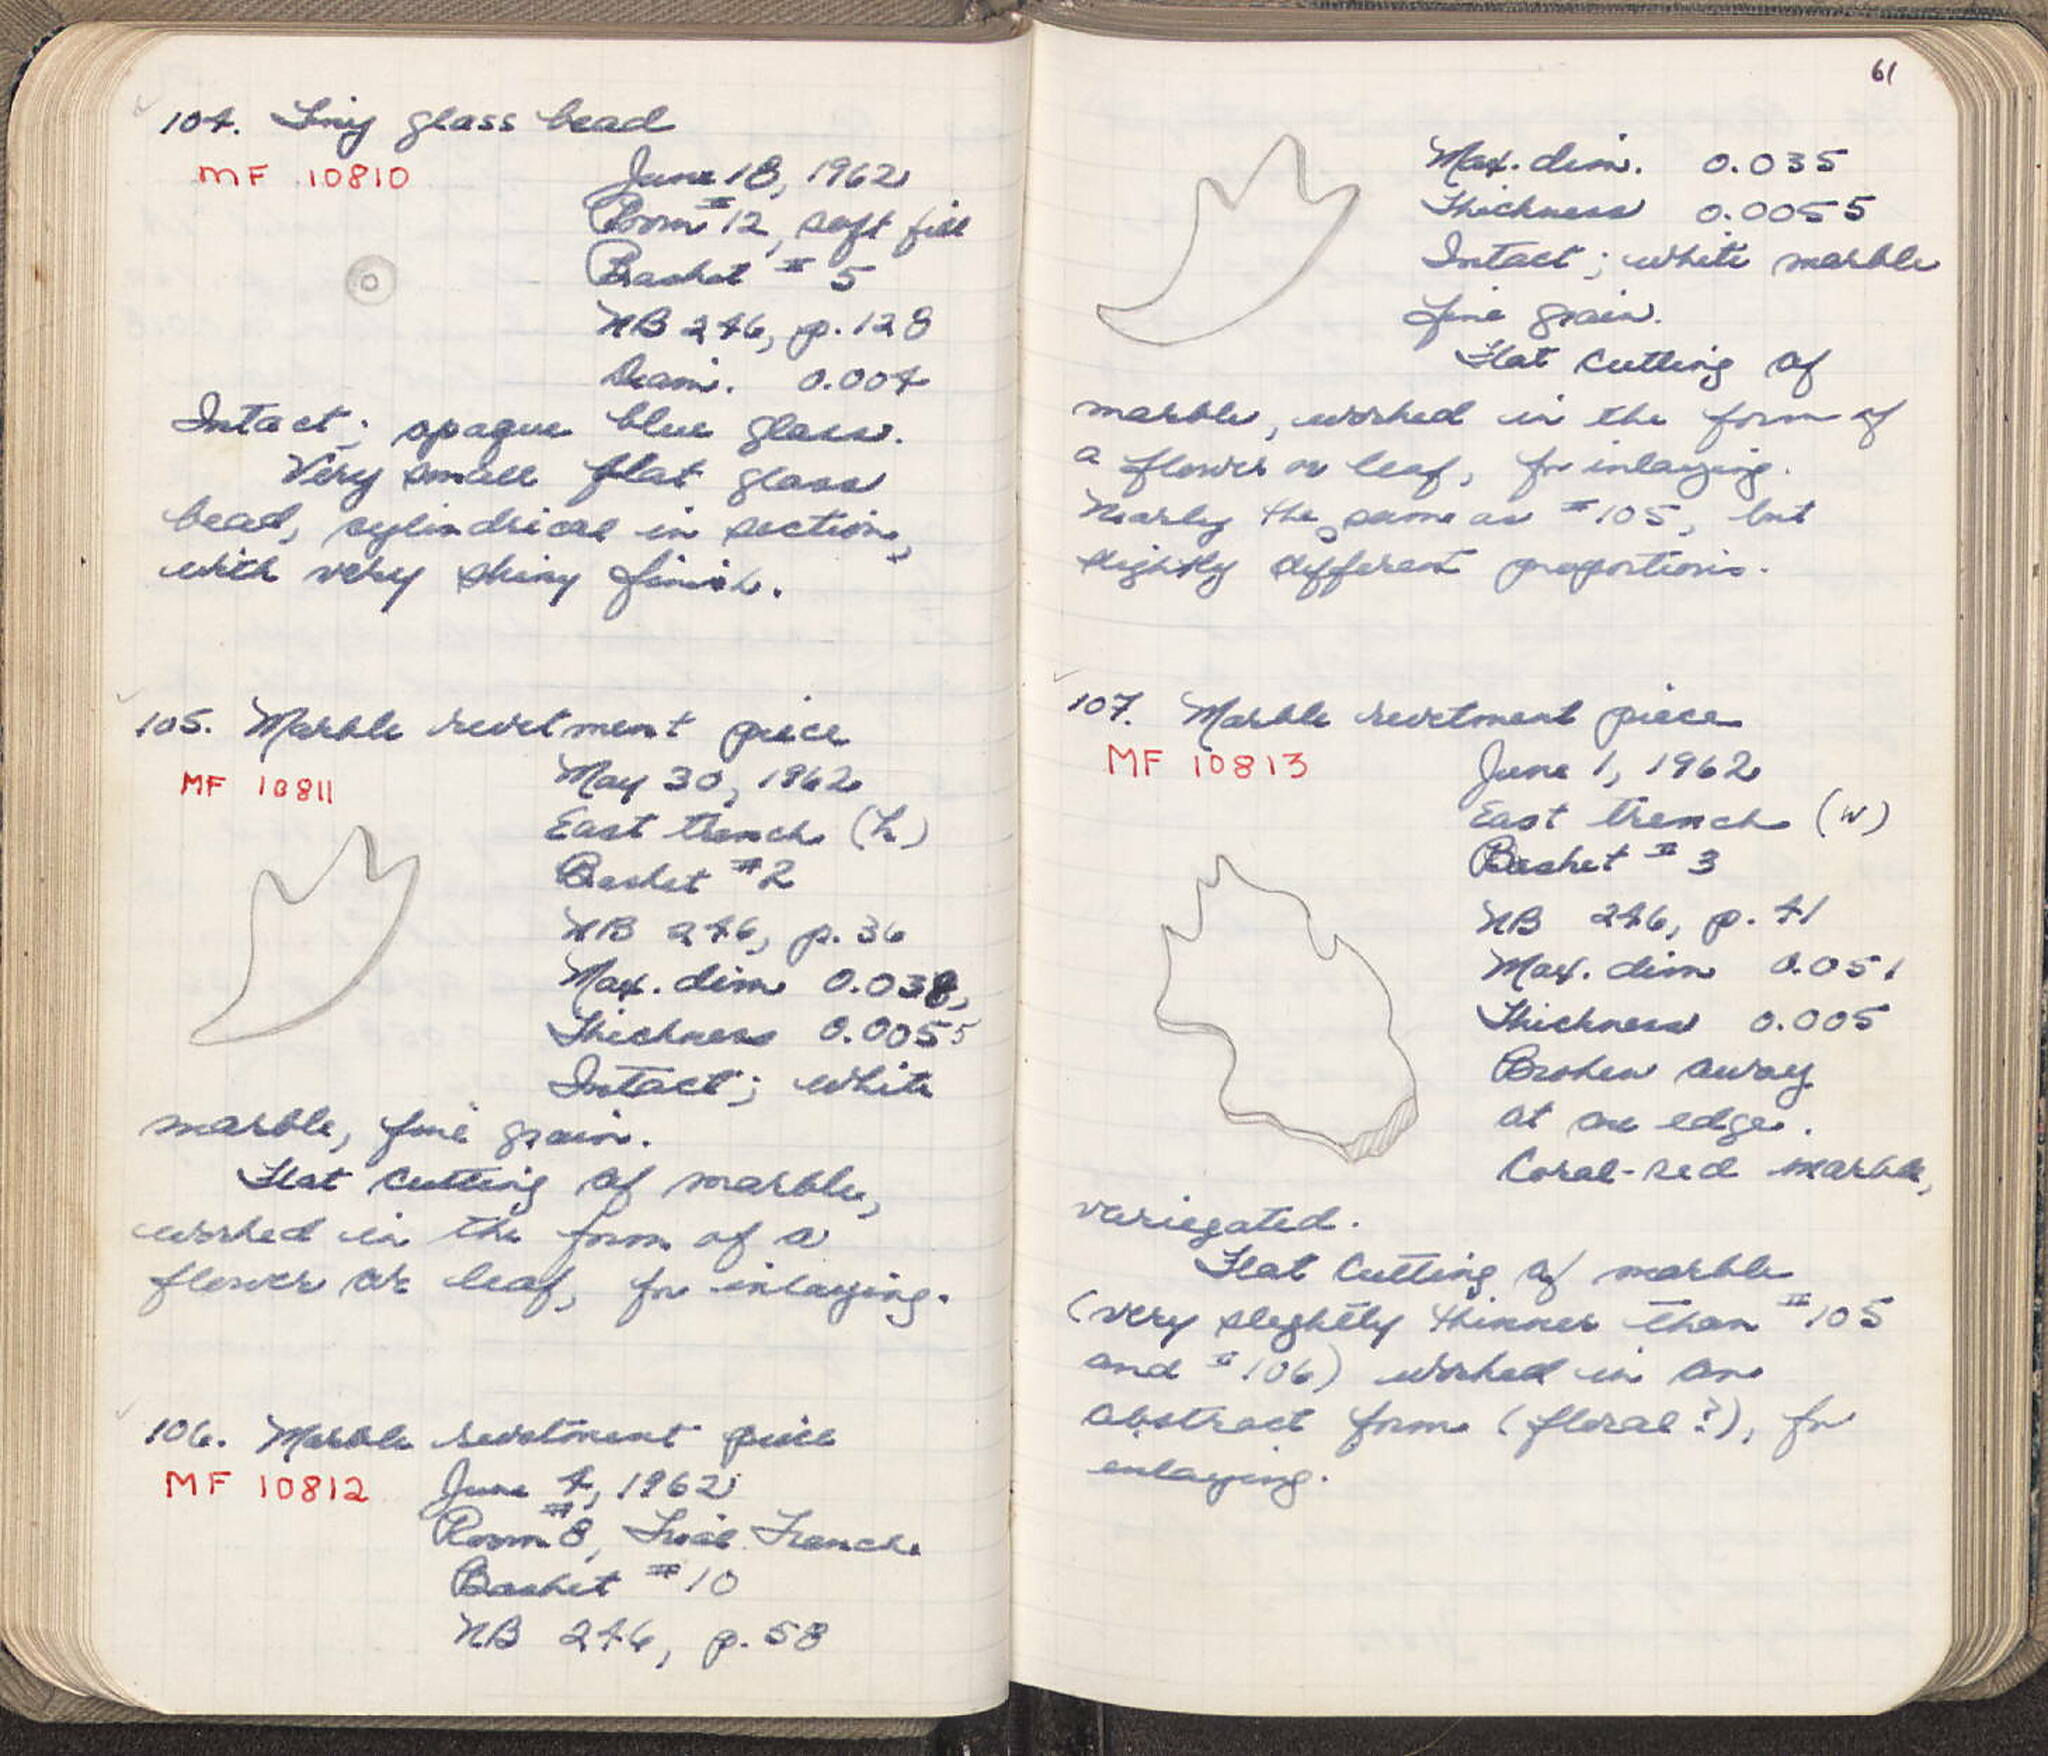 104. Tiny glass bead
MF 10810
June 18, 1962
Room #12, soft fill
Basket # 5
NB 246, p. 128
Diam. 0.004
Intact; opaque blue glass.
Very small flat glass
bead, cylindrical in section,
with very shiny finish.
105. Marble revetment piece
MF 10811
May 30, 1962
East trench (h)
Basket #2
NB 246, p. 36
Max. dim 0.038,
Thickness 0.0055
Intact; white
marble, fine grain.
Flat cutting of marble,
worked in the form of a
flower or leaf, for inlaying.
106. Marble revetment piece
MF 10812
June 4, 1962
Room #8, Trial Trench
Basket #10
NB 246, p. 58
61
Max. dim. 0.035
Thickness 0.0055
Intact; white marble
fine grain.
Flat cutting of
marble, worked in the form of
a flower or leaf, for inlaying.
Nearly the same as #105, but
slightly different proportions.
107. Marble revetment piece
MF 10813
June 1, 1962
East trench (w)
Basket # 3
NB 246, p. 41
Max. dim 0.051
Thickness 0.005
Broken away
at one edge.
Coral-red marble,
variegated.
Flat cutting of marble
(very slightly thinner than #105
and #106) worked in an
abstract form (floral?), for
inlaying.